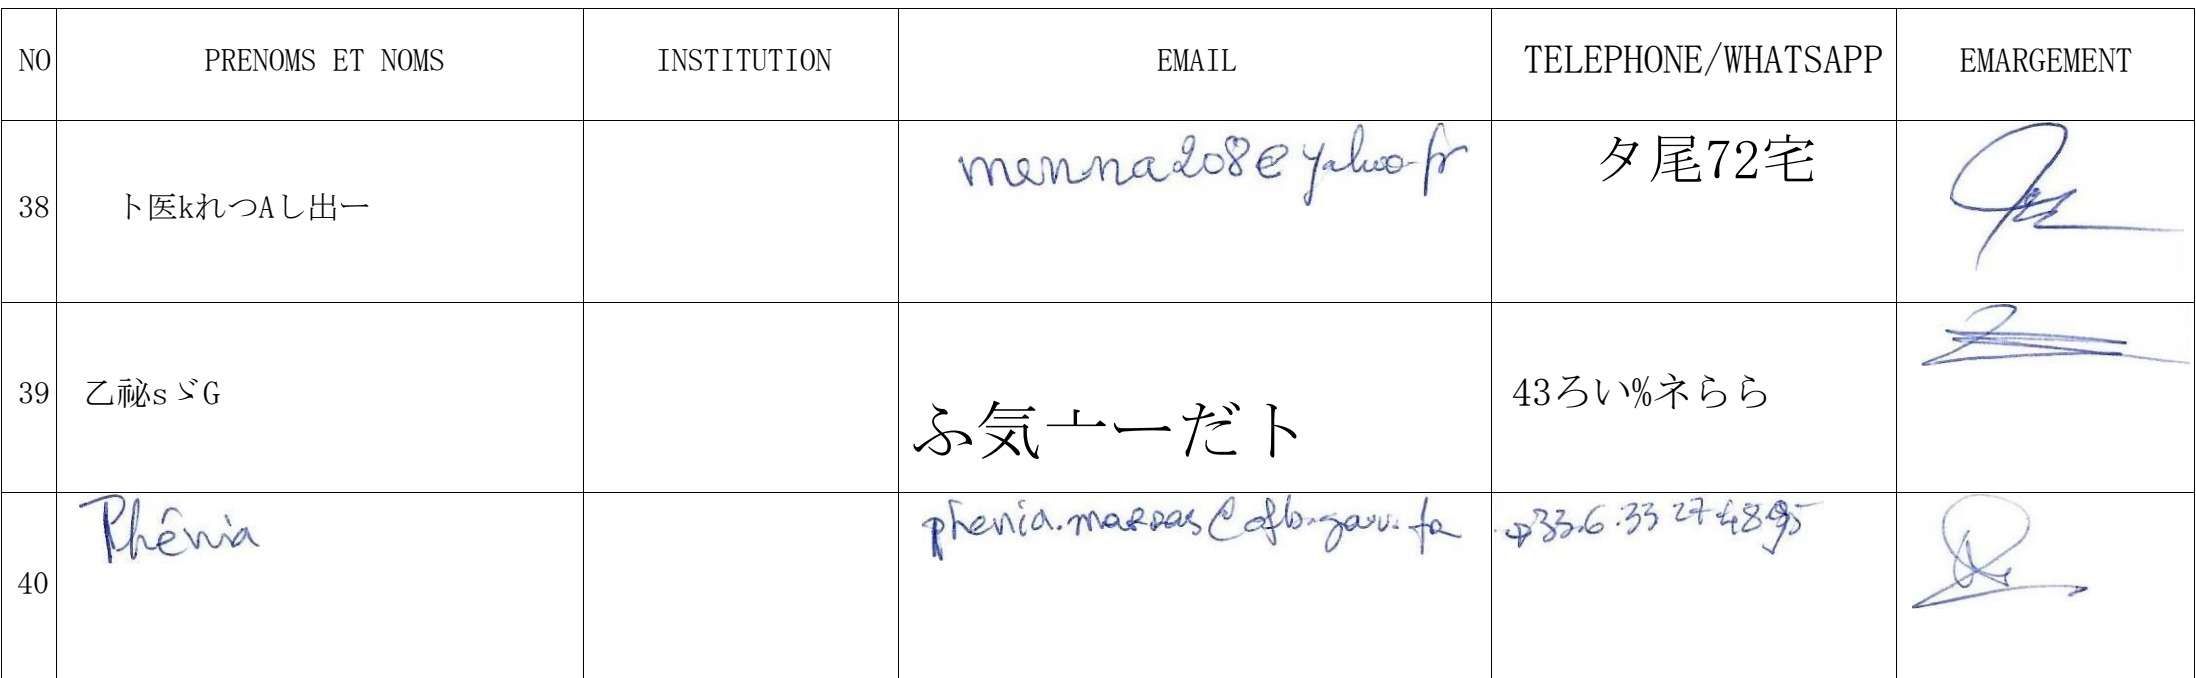 NO PRENOMS ET NOMS INSTITUTION EMAIL TELEPHONE/WHATSAPP EMARGEMENT
38 ト医kれつAし出ー menna208@yahoo.fr タ尾72宅
39 乙祕sゞG ふ気亠ーだト 43ろい%ネらら
40 Phênia +33.6.33 27 48 95